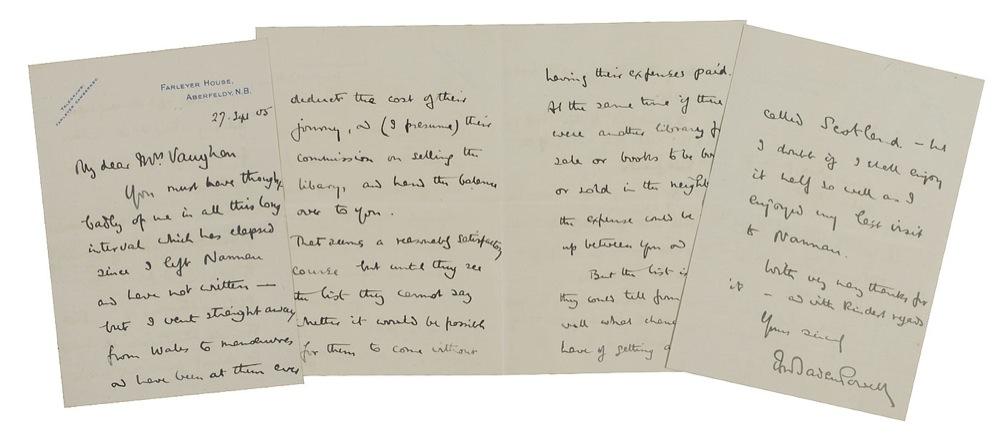 TELEGRAMS
FARLEYER CAMSERNEY.
FARLEYER HOUSE,
ABERFELDY, N.B.
27. Sept 05
My dear Mrs. Vaughan
You must have though
badly of me in all this long
interval which has elapsed
since I left Nannau
and have not written —
but I went straight away
from Wales to manoeuvres
and have been at them ever
deduct the cost of their
journey, and (I presume) their
commission on selling the
library, and hand the balance
over to you.
That seems a reasonably satisfactory
course but until they see
the list they cannot say
whether it would be possible
for them to come without
having their expenses paid.
At the same time if there
were another library f
sale or books to be bo
or sold in the neighb
the expense could be
up between you and
But the list is
they could tell from
well what chanc
have of getting a
called Scotland. — but
I doubt if I shall enjoy
it half so well as I
enjoyed my last visit
to Nannau.
With very many thanks for
it — and with kindest regards
Yours sincly
BadenPowell